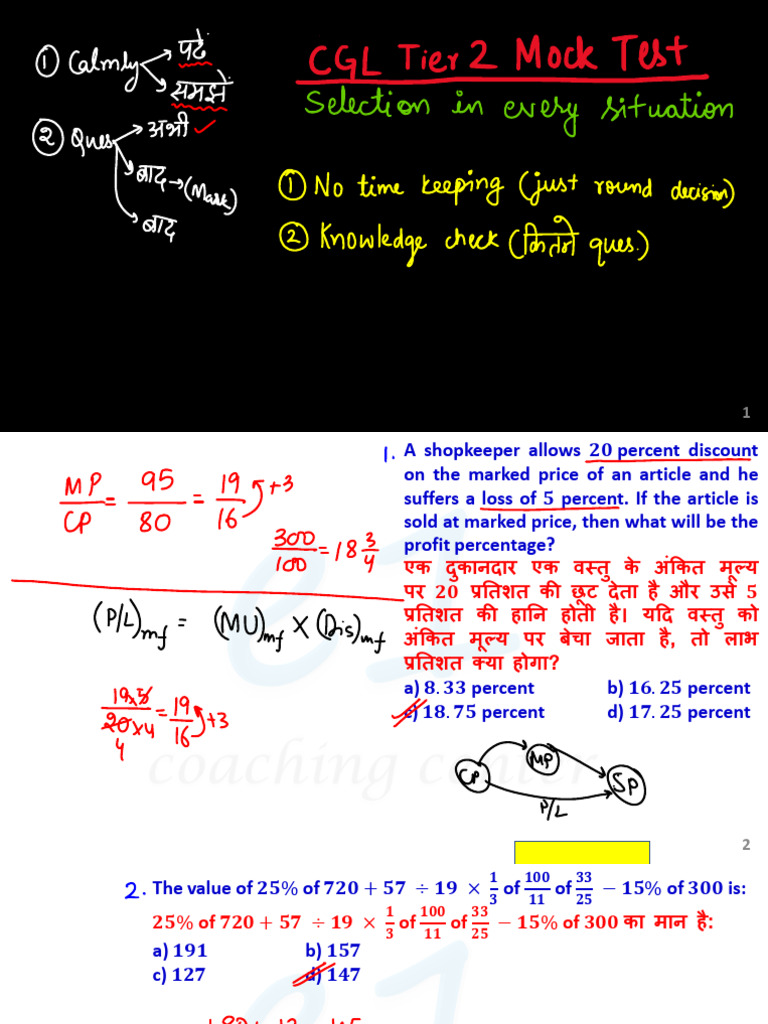 ① Calmly → पढ़ें
→ समझें
② Ques → अभी ✓
→ बाद → (Mark)
→ बाद
CGL Tier 2 Mock Test
Selection in every situation
① No time keeping (just round decision)
② Knowledge check (कितने ques.)
1
MP/CP = 95/80 = 19/16 +3
300/100 = 18 3/4
(P/L)mf = (MU)mf × (Dis)mf
19×5/20×4 = 19/16 +3
4
1. A shopkeeper allows 20 percent discount
on the marked price of an article and he
suffers a loss of 5 percent. If the article is
sold at marked price, then what will be the
profit percentage?
एक दुकानदार एक वस्तु के अंकित मूल्य
पर 20 प्रतिशत की छूट देता है और उसे 5
प्रतिशत की हानि होती है। यदि वस्तु को
अंकित मूल्य पर बेचा जाता है, तो लाभ
प्रतिशत क्या होगा?
a) 8.33 percent b) 16.25 percent
c) 18.75 percent d) 17.25 percent
CP MP SP
P/L
coaching center
2
2. The value of 25% of 720 + 57 ÷ 19 × 1/3 of 100/11 of 33/25 − 15% of 300 is:
25% of 720 + 57 ÷ 19 × 1/3 of 100/11 of 33/25 − 15% of 300 का मान है:
a) 191 b) 157
c) 127 d) 147